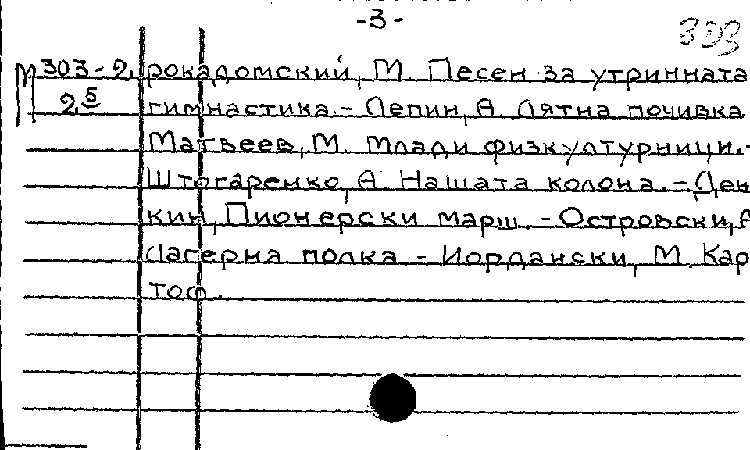 -3-
303
М 303-2. рокадомский, М. Песен за утринната
2 5 гимнастика.- Лепин, А. Лятна почивка
Матвеев, М. Млади физкултурници.-
Штогаренко, А. Нашата колона.-Ден
кин, Пионерски марш.-Островски, А
Лагерна полка - Иордански, М. Кар
тоф.